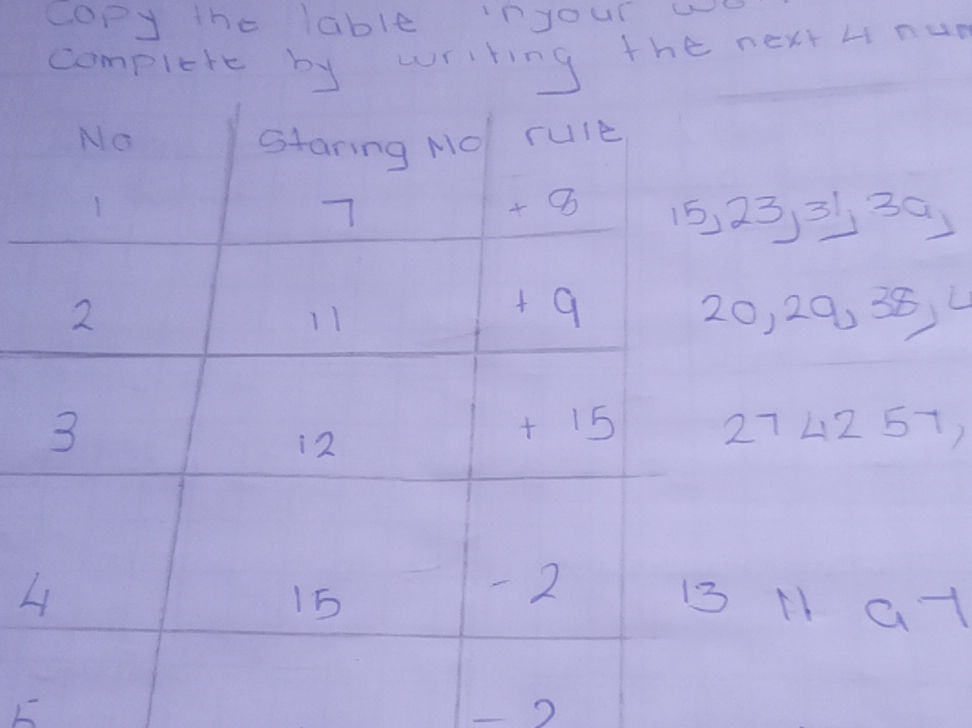 Copy the lable in your
Complete by writing the next 4
No Staring No rule
1 7 + 8 15, 23, 31, 39,
2 11 + 9 20, 29, 38, 4
3 12 + 15 27 42 57,
4 15 - 2 13 11 9 7
5 - 2